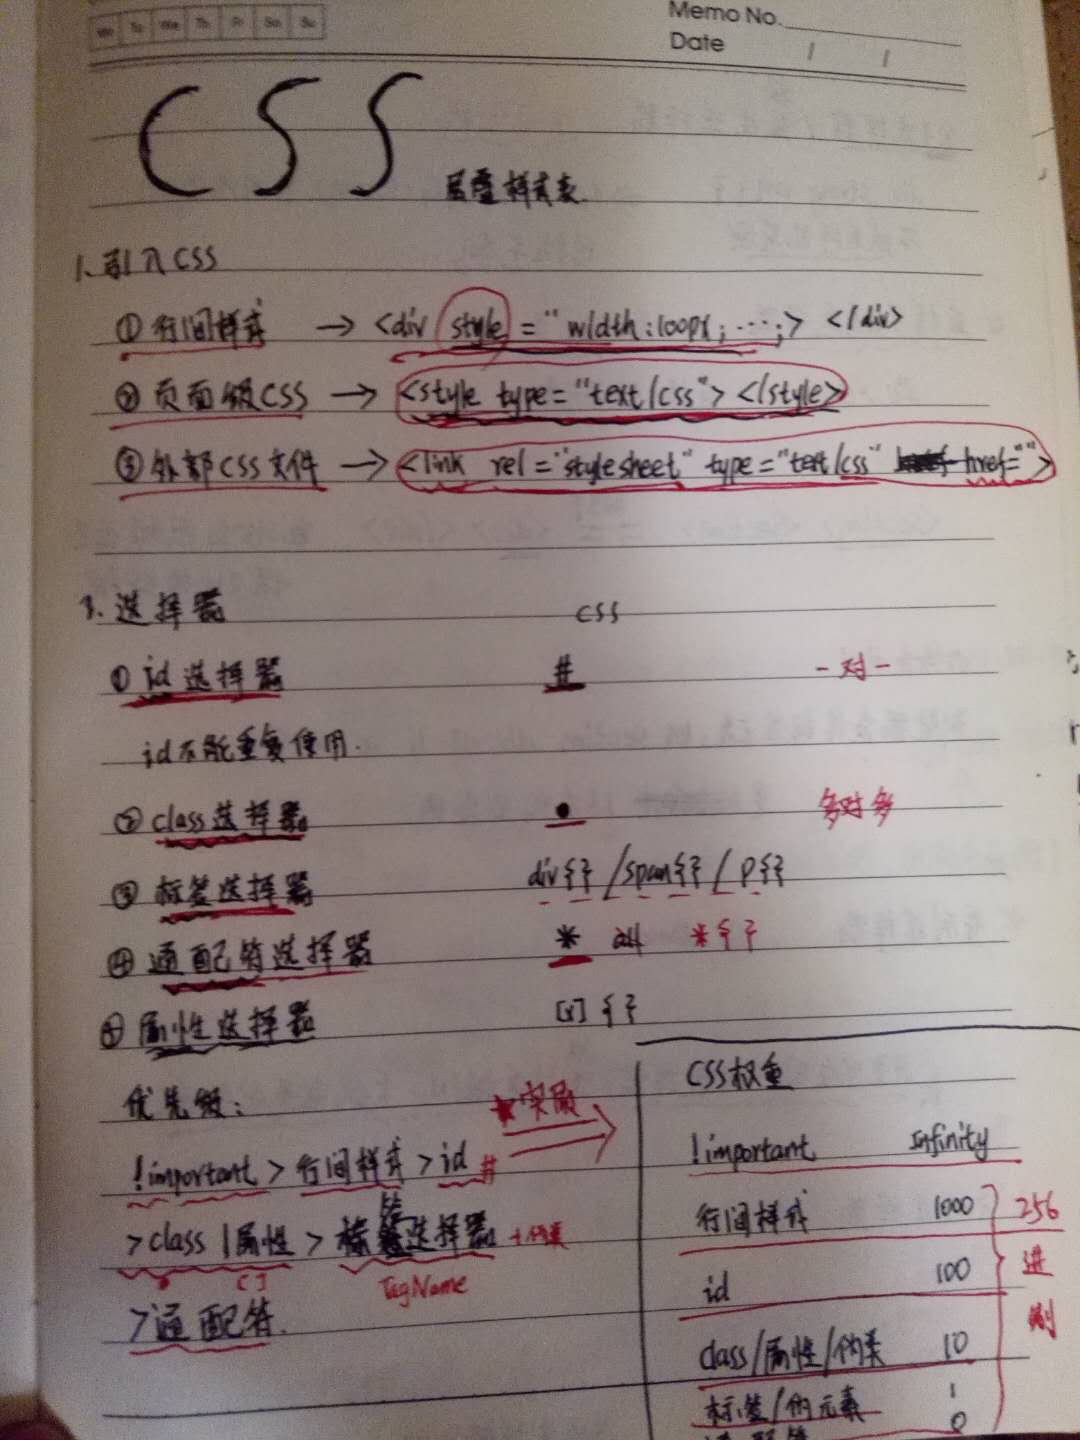 Mo Tu We Th Fr Sa Su
Memo No.
Date / /
CSS
层叠样式表
1. 引入CSS
① 行间样式 → <div style = " width:100px; ...;> </div>
② 页面级CSS → <style type = "text/css"> </style>
③ 外部CSS文件 → <link rel = "stylesheet" type = "text/css" href="">
选择器 css
① id选择器 # 一对一
id不能重复使用.
② class选择器 • 多对多
③ 标签选择器 div{} / span{} / p{}
④ 通配符选择器 * all *{}
属性选择器 [x] {}
优先级:
!important > 行间样式 > id #
> class | 属性 > 标签选择器 + 伪类
. [ ] TagName
> 通配符.
*实质
CSS权重
!important Infinity
行间样式 1000
id 100
class/属性/伪类 10
标签/伪元素 1
通配符 0
256
进
制